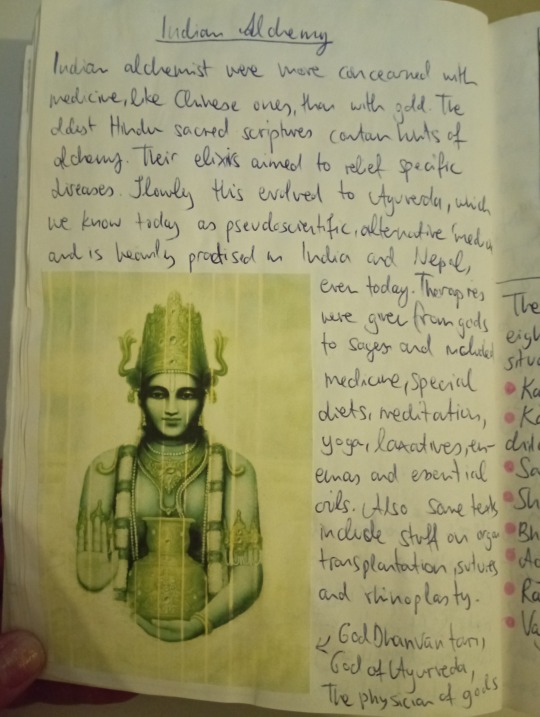 Indian Alchemy
Indian alchemist were more concearned with
medicine, like Chinese ones, than with gold. The
oldest Hindu sacred scriptures contain hints of
alchemy. Their elixirs aimed to relief specific
diseases. Slowly this evolved to Ayurveda, which
we know today as pseudoscientific, alternative media
and is heavily practised in India and Nepal,
even today. Therapies
were given from gods
to sages and included
medicine, special
diets, meditation,
yoga, laxatives, en-
emas and essential
oils. Also some texts
include stuff on organ
transplantation, sutures
and rhinoplasty.
↙ God Dhanvantari,
God of Ayurveda,
The physician of gods
The
eigh
situ
• Ka
• Ka
child
• Sa
• Sh
• Bh
• Ra
• Va